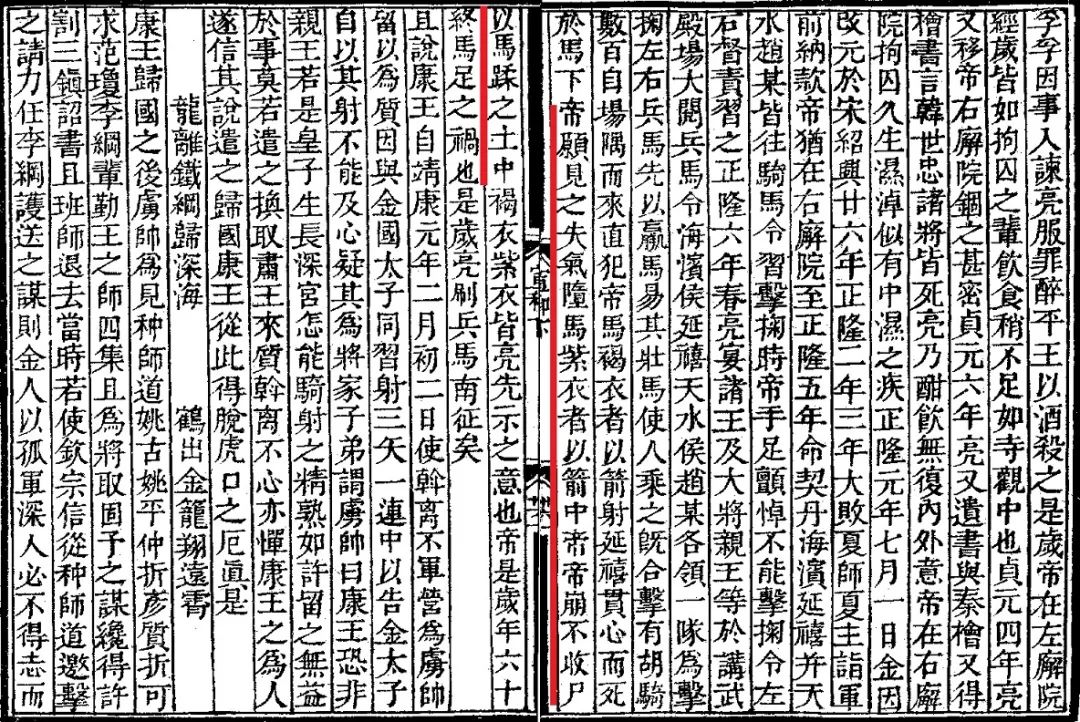 孛孛因事入諫亮服罪醉平王以酒殺之是歲帝在左廨院
經歲皆如拘囚之輩飲食稍不足如寺觀中也貞元四年亮
又移帝右廨院錮之甚密貞元六年亮又遺書與秦檜又得
檜書言韓世忠諸將皆死亮乃酣飲無復內外意帝在右廨
院拘囚久生濕淖似有中濕之疾正隆元年七月一日金因
改元於宋紹興廿六年正隆二年三年大敗夏師夏主詣軍
前納款帝猶在右廨院至正隆五年命契丹海濱延禧并天
水趙某皆往騎馬令習擊掬時帝手足顫悼不能擊掬令左
右督責習之正隆六年春亮宴諸王及大將親王等於講武
殿場大閱兵馬令海濱侯延禧天水侯趙某各領一隊為擊
掬左右兵馬先以羸馬易其壯馬使人乘之既合擊有胡騎
數百自場隅而來直犯帝馬褐衣者以箭射延禧貫心而死
於馬下帝願見之失氣墮馬紫衣者以箭中帝帝崩不收尸
宣和下
以馬蹂之土中褐衣紫衣皆亮先示之意也帝是歲年六十
終馬足之禍也是歲亮刷兵馬南征矣
且說康王自靖康元年二月初二日使斡离不軍營為虜帥
留以為質因與金國太子同習射三矢一連中以告金太子
自以其射不能及心疑其為將家子弟謂虜帥曰康王恐非
親王若是皇子生長深宮怎能騎射之精熟如許留之無益
於事莫若遣之換取肅王來質斡离不心亦憚康王之為人
遂信其說遣之歸國康王從此得脫虎口之厄真是
龍離鐵網歸深海 鶴出金籠翔遠霄
康王歸國之後虜帥為見种師道姚古姚平仲折彥質折可
求范瓊李綱輩勤王之師四集且為將取固予之謀纔得許
割三鎮詔書且班師退去當時若使欽宗信從种師道邀擊
之請力任李綱護送之謀則金人以孤軍深入必不得志而